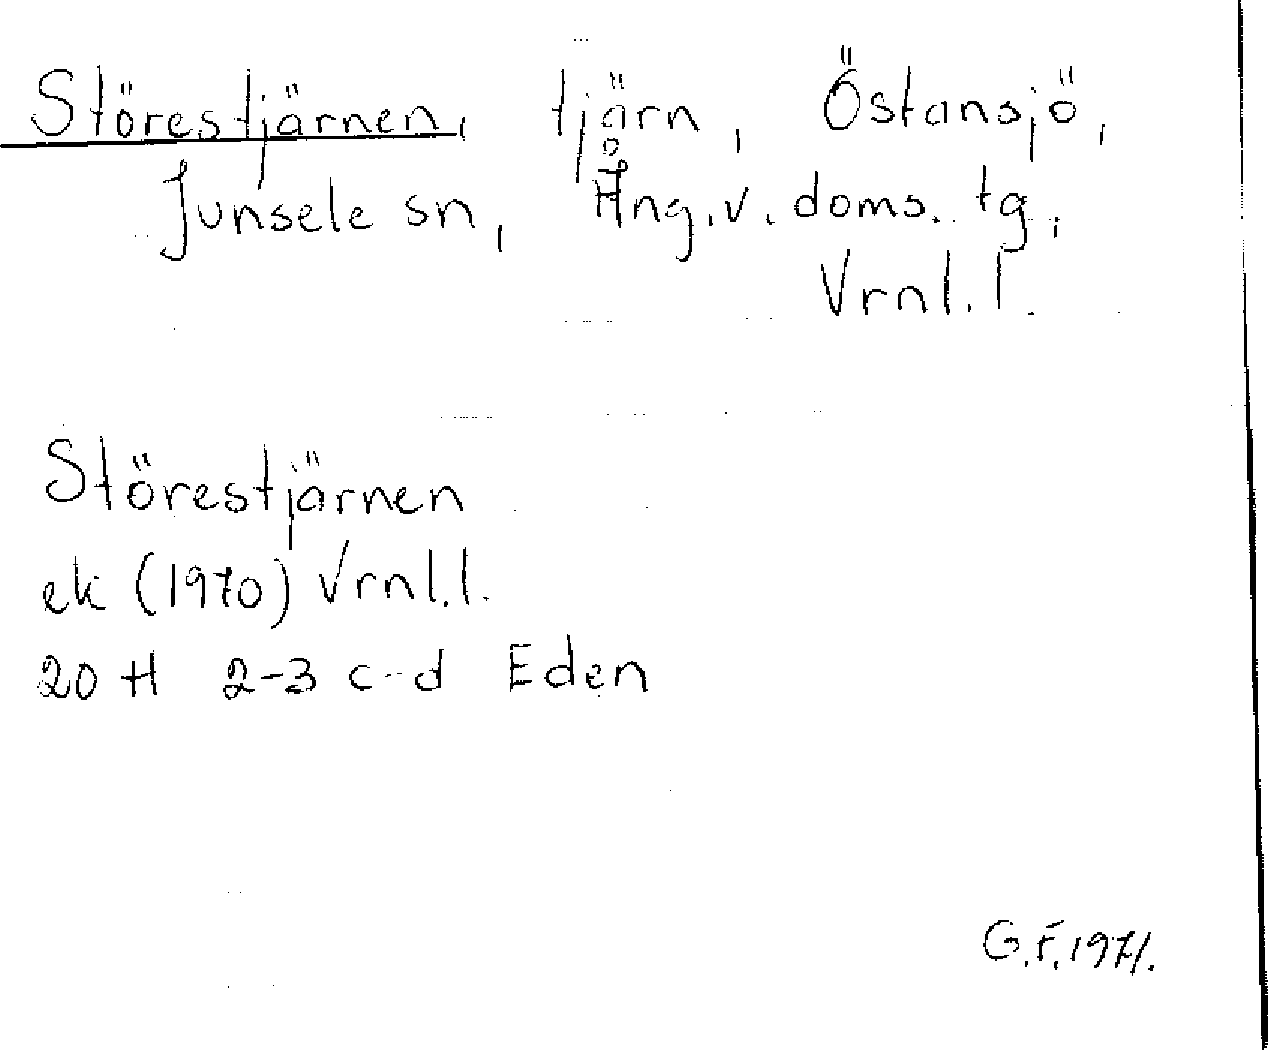 Störestjärnen, tjärn, Östansjö,
Junsele sn, Ång.v. doms. tg,
Vrnl. l.
Störestjärnen
ek (1970) Vrnl. l.
20 H 2-3 c-d Eden
G.F. 1971.